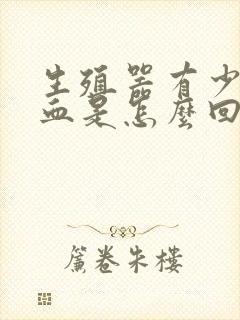 生殖器有少
血是怎麼回
簾卷朱樓